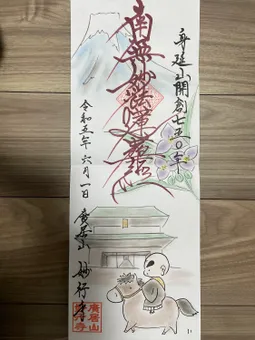 身延山開創七五〇年
南無妙法蓮華経
令和五年六月一日
廣居山 妙行寺
廣居山
妙行寺